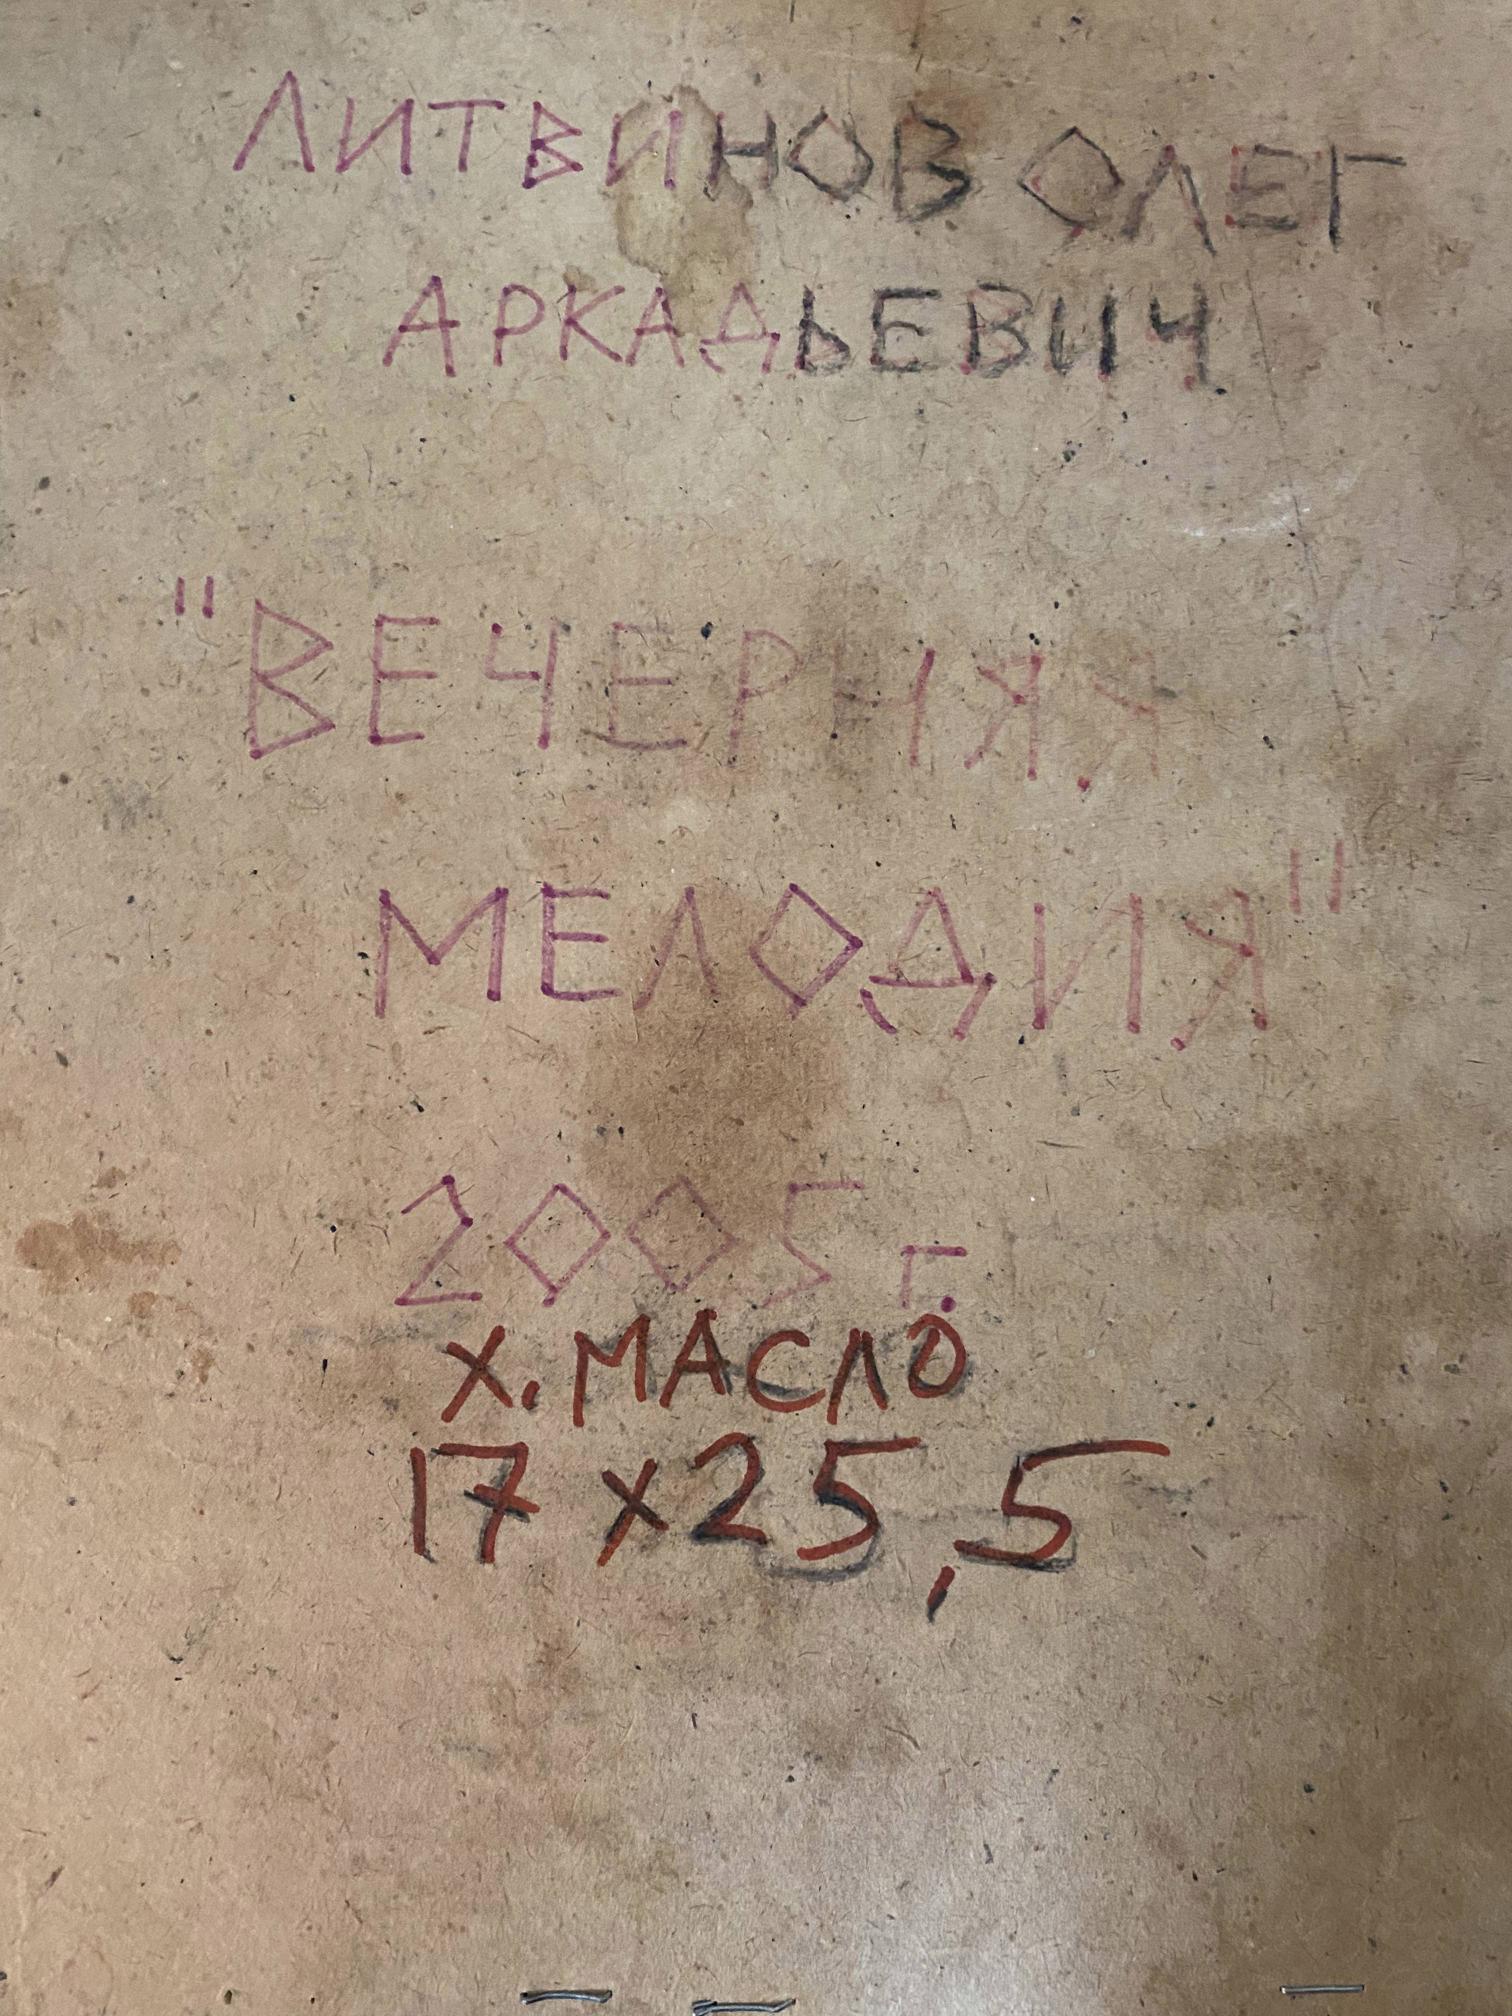 ЛИТВИНОВ ОЛЕГ
АРКАДЬЕВИЧ
"ВЕЧЕРНЯЯ
МЕЛОДИЯ"
2005 г.
х. МАСЛО
17 х 25,5